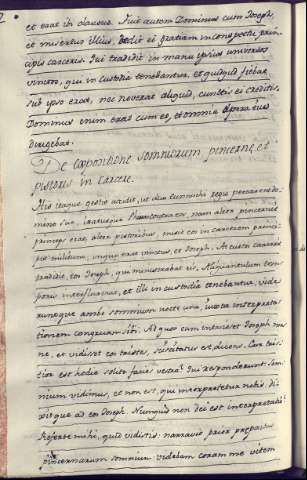 et erat in clausus. Fuit autem Dominus cum Joseph,
et misertus illius, dedit ei gratiam in conspectu prin-
cipis carceris. Qui tradidit in manu ipsius universos
vinctos, qui in custodia tenebantur, et quidquid fiebat
sub ipso erat, nec noverat aliquid, cunctis ei creditis.
Dominus enim erat cum eo, et omnia opera eius
dirigebat.
De expositione somniorum pincernę, et
pistoris in carcere.
His itaque gestis accidit, ut duo eunuchi regis peccarent do-
mino suo, iratusque Pharao contra eos, nam alter pincernis
princeps erat, alter pistoribus, misit eos in carcerem princi-
pis militum, in quo erat vinctus, et Joseph. At custos carceris
tradidit eos Joseph, qui ministrabat eis. Aliquantulum tem-
poris interfluxerat, et illi in custodia tenebantur, vide-
runtque ambo somnium nocte una, iuxta interpretationem
congruam sibi. Ad quos cum introisset Joseph ma-
ne, et vidisset eos tristes, sciscitatus est dicens. Cur tris-
tior est hodie solito facies vestra? Qui responderunt. Som-
nium vidimus, et non est, qui interpretetur nobis. Di-
xitque ad eos Joseph. Numquid non Dei est interpretatio?
Referte mihi, quid vidistis. narravit prior prępositus
pincernarum somnium. videbam coram me vitem